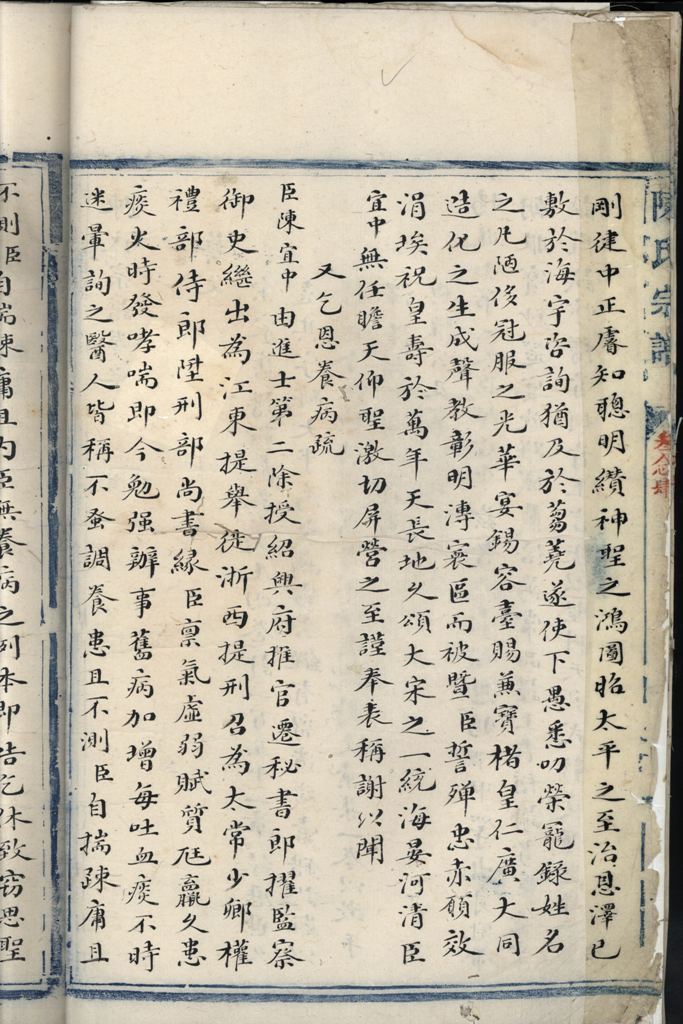 陳氏宗譜
剛健中正睿知聰明纘神聖之鴻圖昭太平之至治恩澤已
敷於海宇咨詢猶及於芻蕘遂使下愚悉叨榮寵錄姓名
之凡陋侈冠服之光華宴錫容臺賜兼寶楮皇仁廣大同
造化之生成聲教彰明溥寰區而被暨臣誓殫忠赤願效
涓埃祝皇壽於萬年天長地久頌大宋之一統海晏河清臣
宜中無任瞻天仰聖激切屏營之至謹奉表稱謝以聞
又乞恩養病疏
臣陳宜中由進士第二除授紹興府推官遷秘書郎擢監察
御史繼出為江東提舉徙浙西提刑召為太常少卿權
禮部侍郎陞刑部尚書緣臣稟氣虛弱賦質尫羸久患
痰火時發哮喘即今勉强辦事舊病加增每吐血痰不時
迷暈詢之醫人皆稱不蚤調養患且不測臣自揣疎庸且
不測臣自揣疎庸且內臣無養病之列本即告乞休致窃思聖